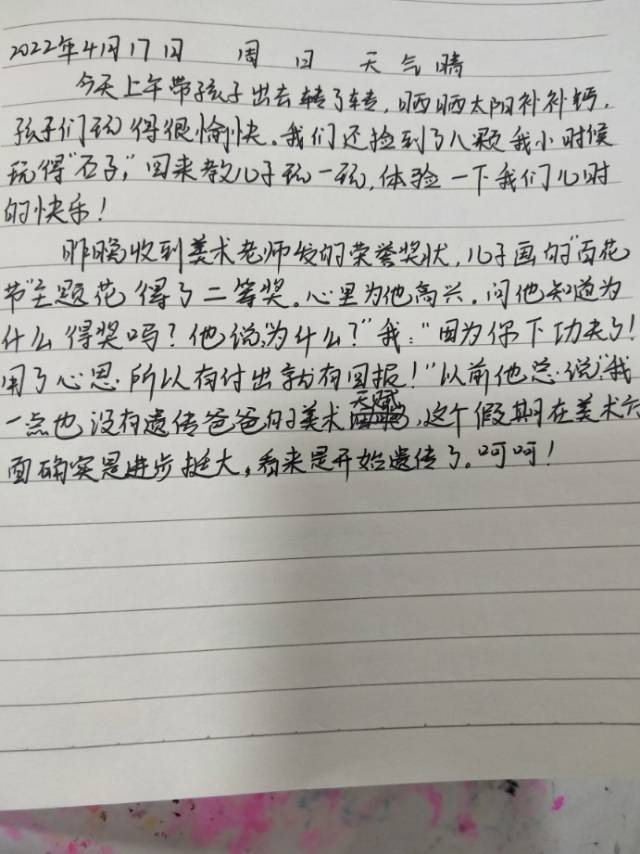 2022年4月17日 周日 天气晴
今天上午带孩子出去转了转,晒晒太阳补补钙,
孩子们玩得很愉快。我们还捡到了八颗我小时候
玩得“石子”,回来教儿子玩一玩,体验一下我们儿时
的快乐!
昨晚收到美术老师发的荣誉奖状,儿子画的“百花
节”主题花得了二等奖。心里为他高兴,问他知道为
什么得奖吗?他说,为什么?”我:“因为你下功夫了!
用了心思.所以有付出就有回报!”以前他总说:“我
一点也没有遗传爸爸的美术天赋,这个假期在美术方
面确实是进步挺大,看来是开始遗传了。呵呵!